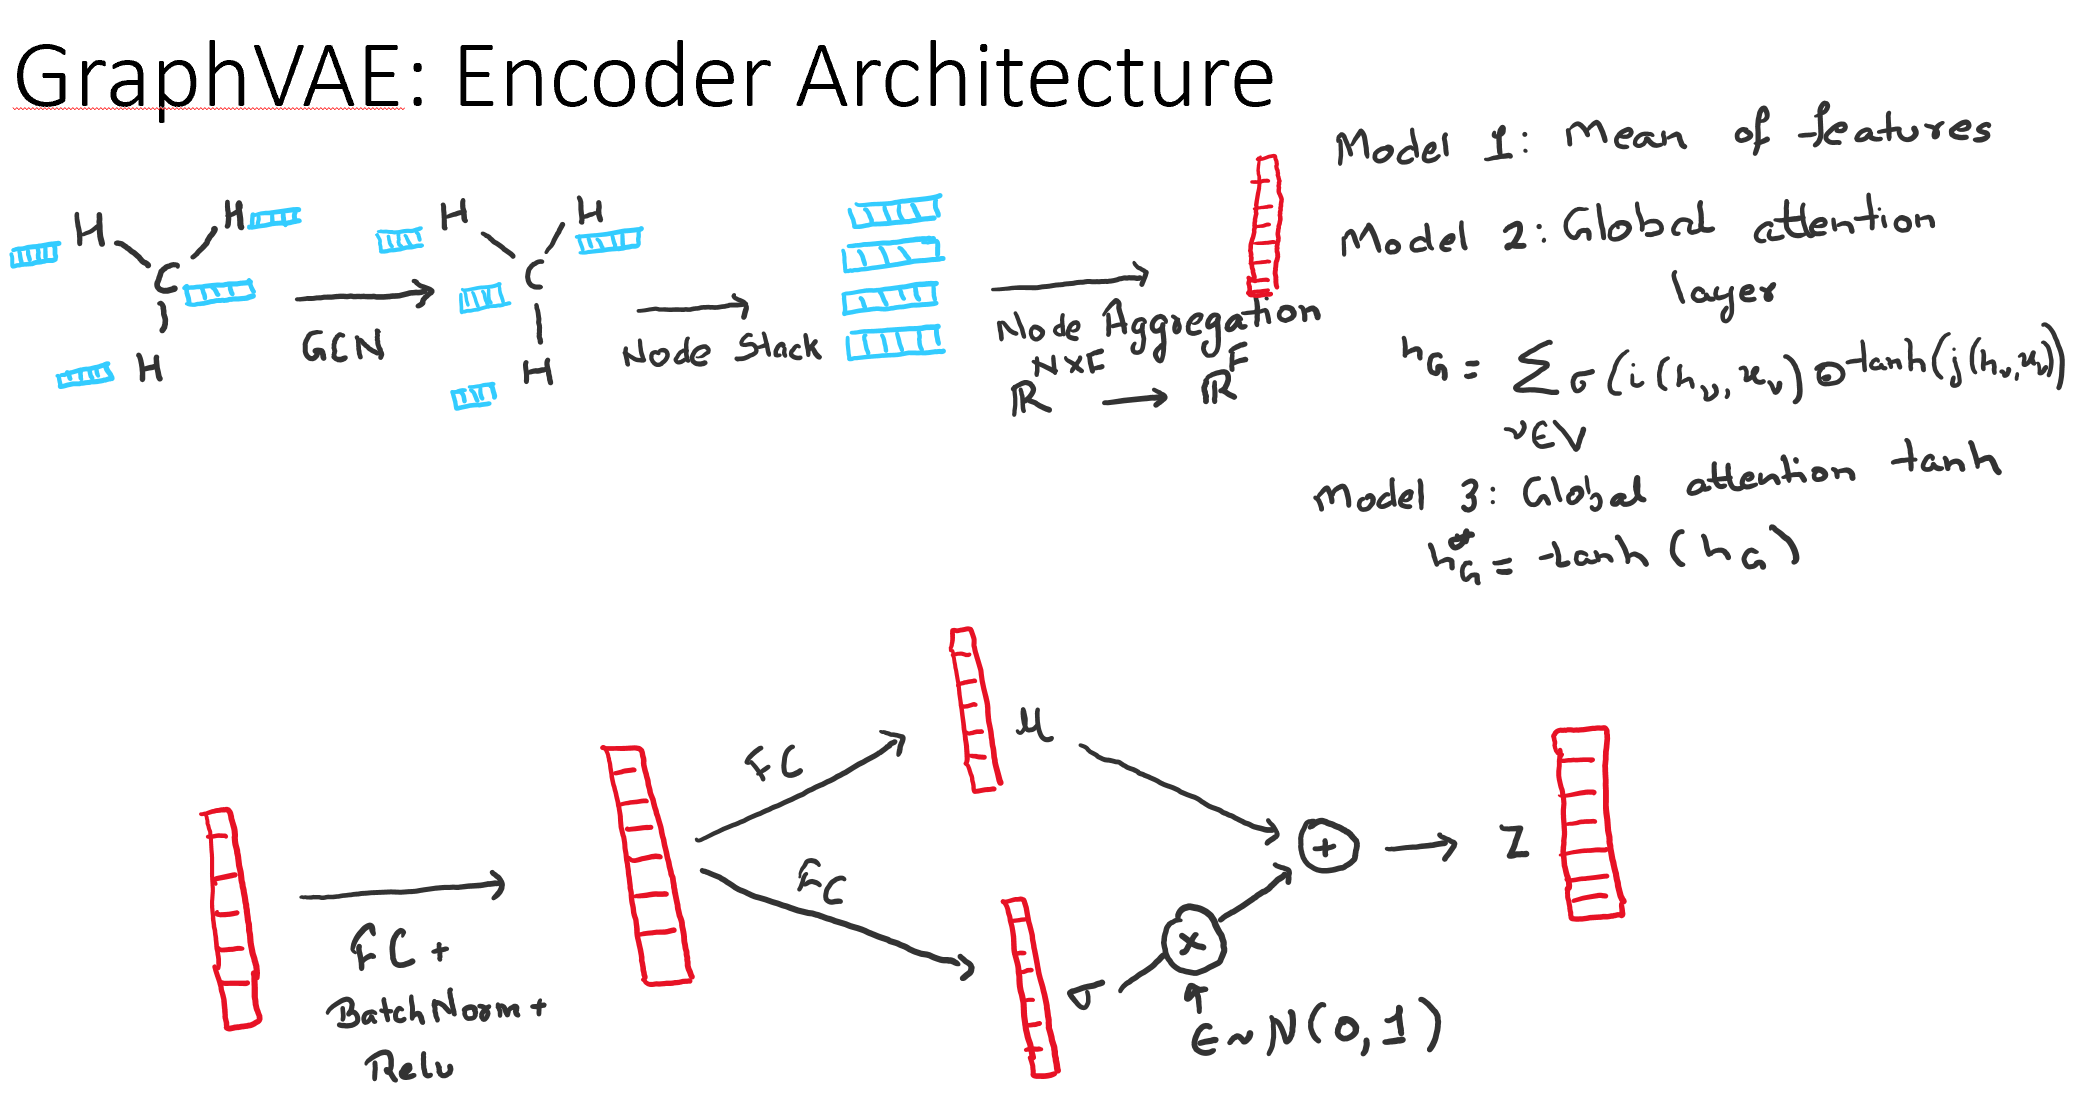 GraphVAE: Encoder Architecture
H H
C
H
GCN
H H
C
H
Node Stack
Node Aggregation
ℝ^{N×F} → ℝ^F
Model 1: Mean of features
Model 2: Global attention
layer
h_G = Σ_{v∈V} σ(i(h_v, x_v) ⊙ tanh(j(h_v, x_v))
Model 3: Global attention tanh
h_G = tanh(h_G)
FC +
BatchNorm +
Relu
FC
μ
FC
σ
×
ϵ ~ N(0, 1)
+
Z